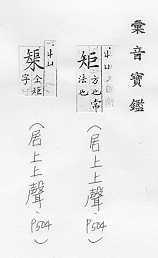 彙音寶鑑
矩
方也常
法也
(居上上聲、P504)
榘
仝矩
字
(居上上聲、P504)